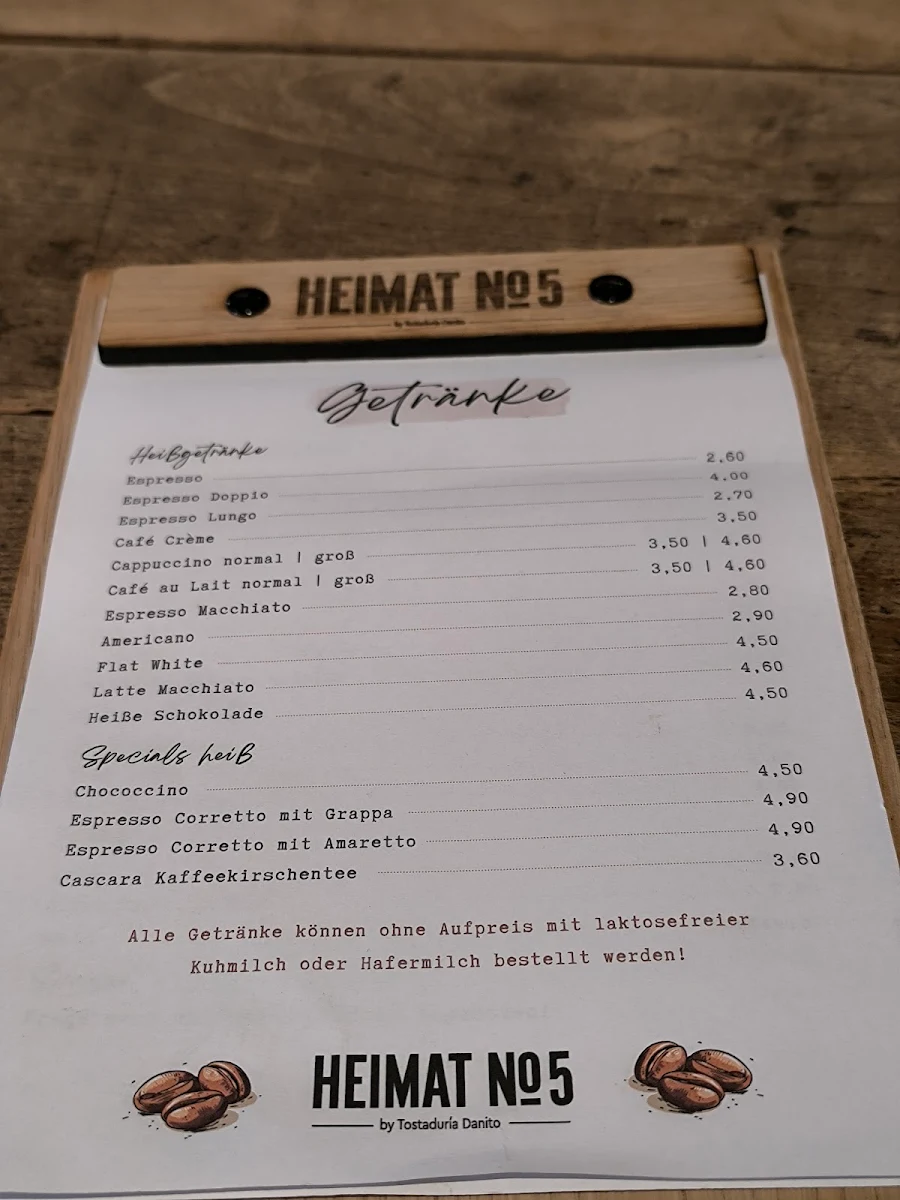 HEIMAT No 5
by Tostaduría Danito
Getränke
Heißgetränke
Espresso 2,60
Espresso Doppio 4,00
Espresso Lungo 2,70
Café Crème 3,50
Cappuccino normal | groß 3,50 | 4,60
Café au Lait normal | groß 3,50 | 4,60
Espresso Macchiato 2,80
Americano 2,90
Flat White 4,50
Latte Macchiato 4,60
Heiße Schokolade 4,50
Specials heiß
Chococcino 4,50
Espresso Corretto mit Grappa 4,90
Espresso Corretto mit Amaretto 4,90
Cascara Kaffeekirschentee 3,60
Alle Getränke können ohne Aufpreis mit laktosefreier
Kuhmilch oder Hafermilch bestellt werden!
HEIMAT No 5
by Tostaduría Danito